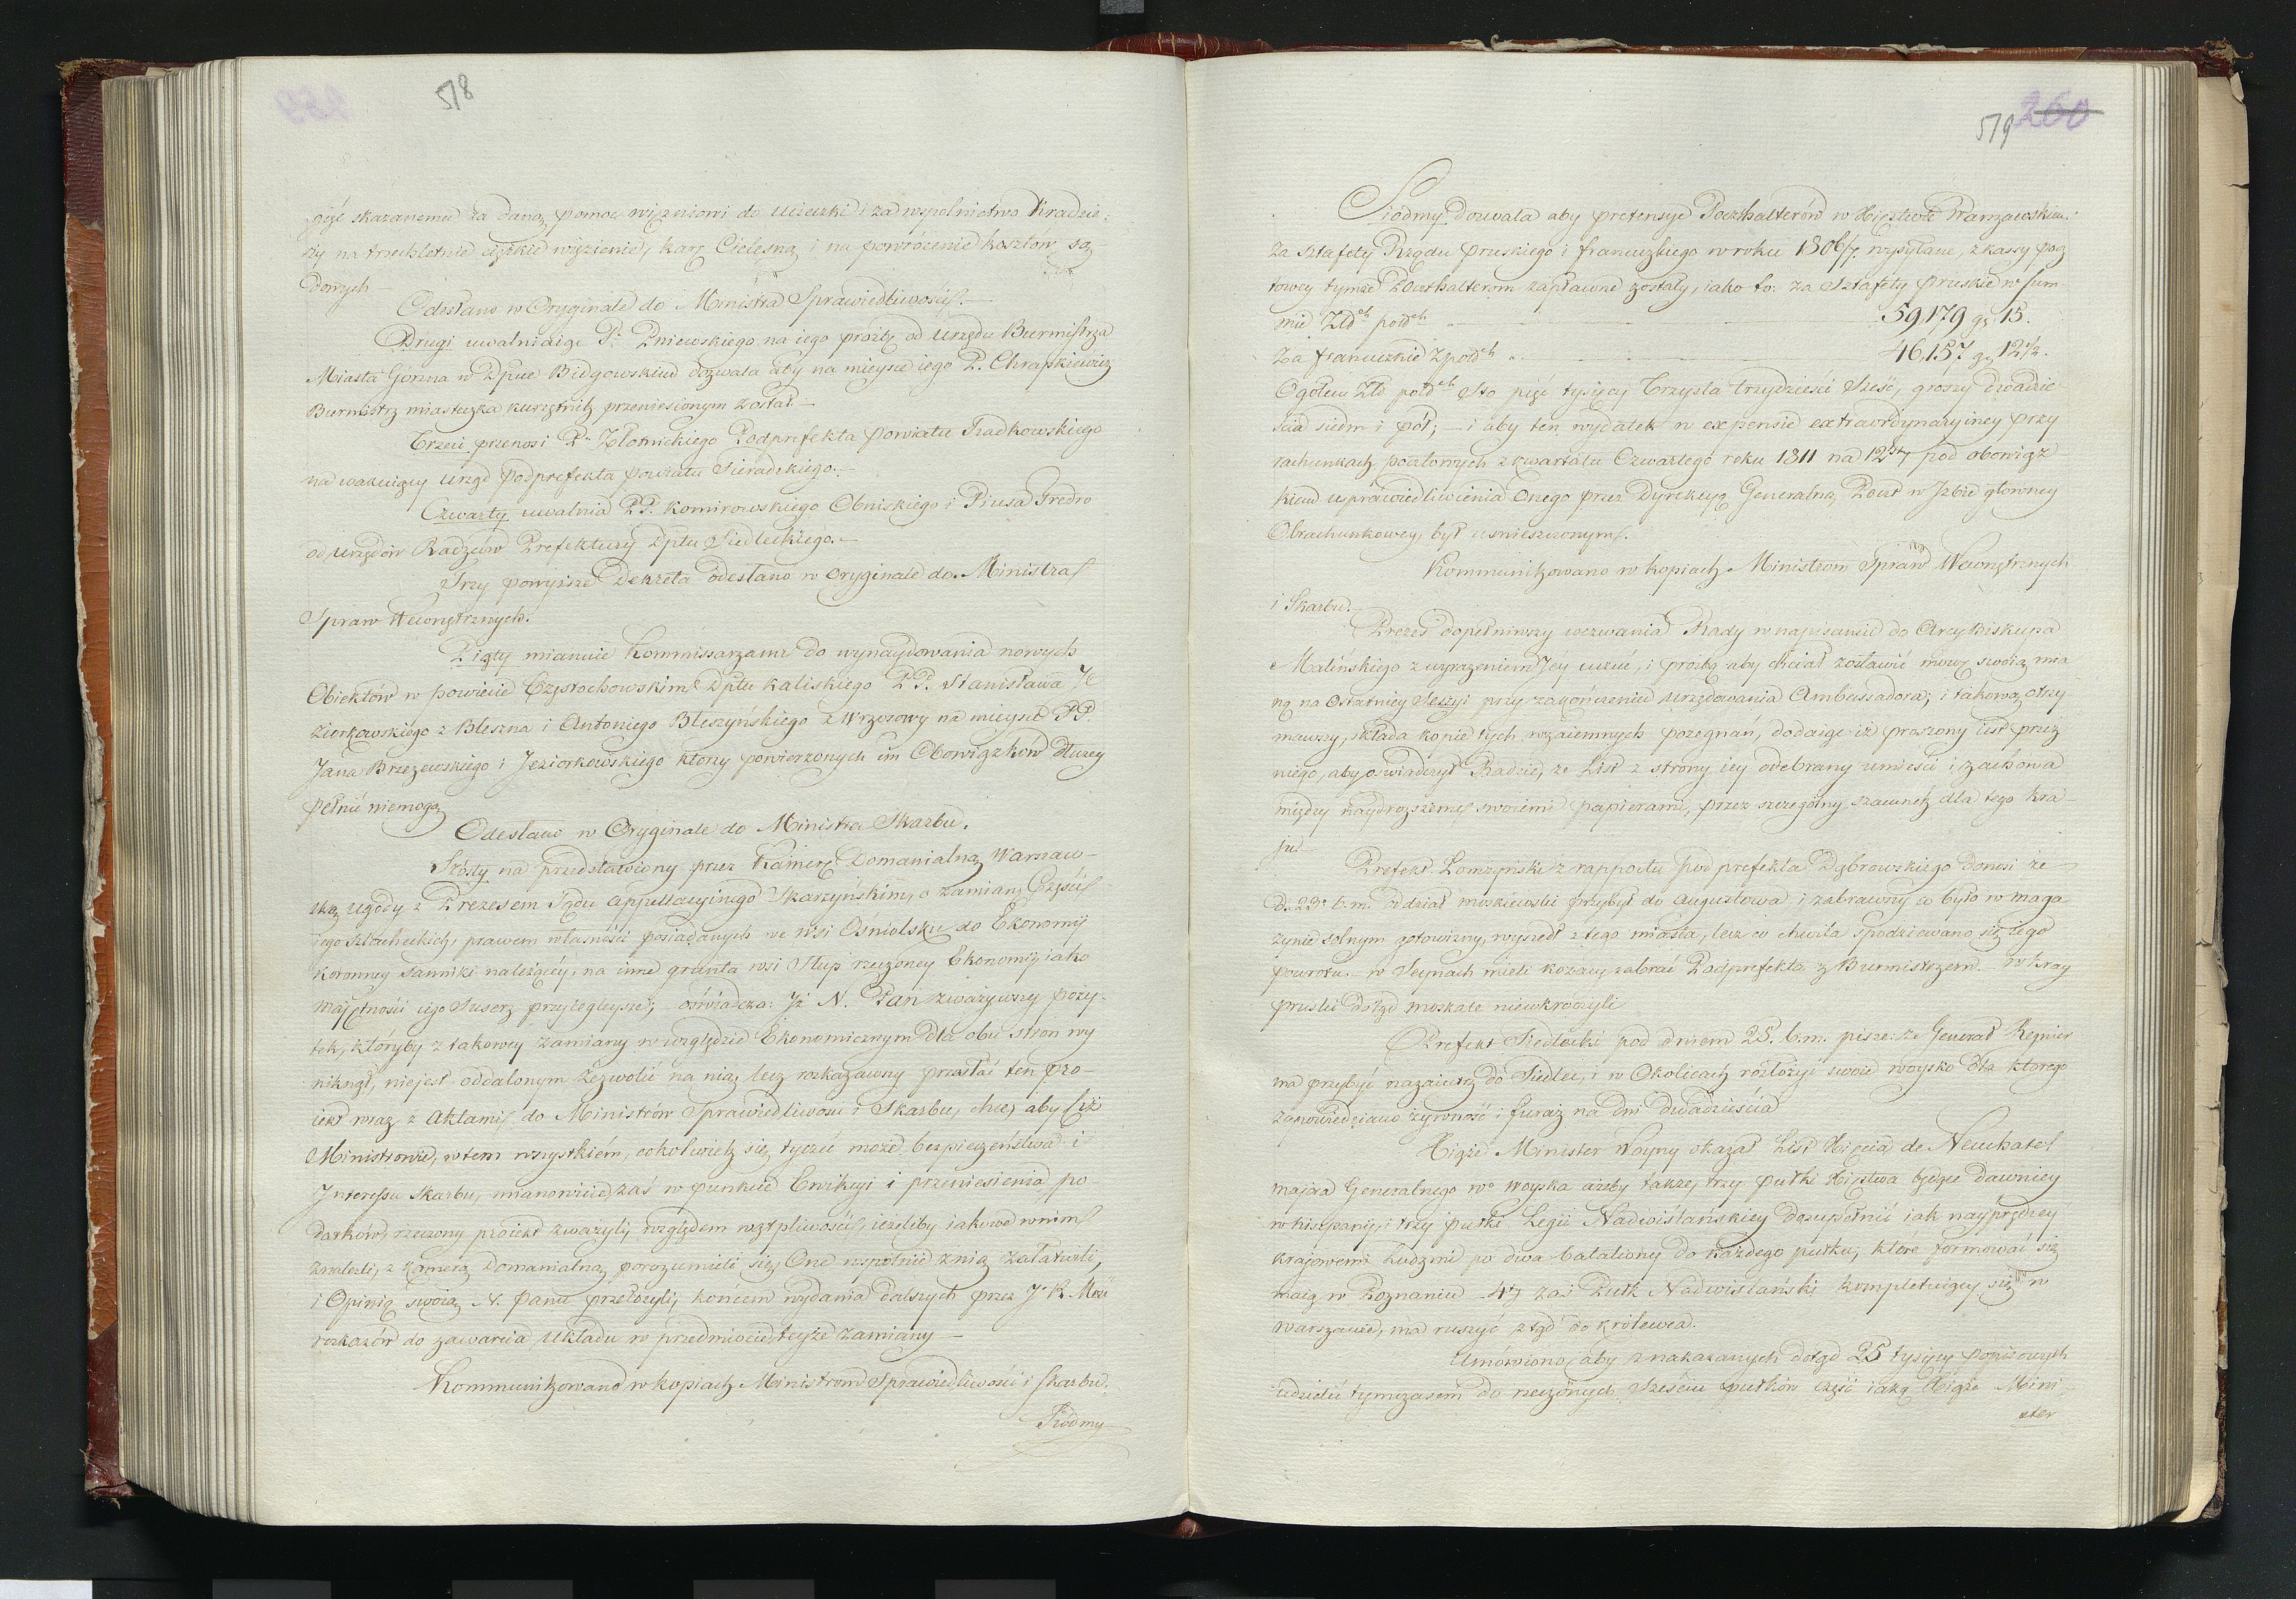 518
giżę skazanemu za daną pomoc więźniowi do ucieczki i za wspolnictwo Kradzie-
ży na trzechletnie ciężkie więzienie, karę Cielesną i na powrócenie kosztów są
dowych
Odesłano w Oryginale do Ministra Sprawiedliwości.
Drugi uwalniaiąc P. Pniewskiego na iego prożbę od urzędu Burmistrza
Miasta Górzna w Dptcie Bidgowskim dozwala aby na mieysce iego P. Chrapkiewicz
Burmistrz miasteczka kurzętnik przeniesionym został.
Trzeci przenosi P. Złotnickiego Podprefekta powiatu Radkowskiego
na wakuiący urząd podprefekta powiatu Sieradzkiego.
Czwarty uwalnia PP. Komirowskiego Obniskiego i Piusa Fredro
od urzędów Radzców Prefektury Dptu Siedleckiego.
Trzy powyższe Dekreta odesłano w oryginale do Ministra
Spraw Wewnętrznych.
Piąty mianuie Kommissarzami do wynaydowania nowych
Obiektów w powiecie Częstochowskim Dptu kaliskiego PP. Stanisława Je
ziorkowskiego z Bleszna i Antoniego Bleszyńskiego z Wrzosowy na mieysce PP.
Jana Brzezowskiego i Jeziorkowskiego którzy powierzonych im Obowiązków dłużey
pełnić niemogą
Odesłano w Oryginale do Ministra Skarbu.
Szósty na przedstawiony przez Kamerę Domanialną Warszaw-
ską ugody z Prezesem Sądu appellacyinego Skarzyńskim, o zamianę Części
iego szlacheckich, prawem własności posiadanych we wsi Ośmolsku do Ekonomij
koronney Sanniki należącéy, na inne grunta wsi Słup rzeczoney Ekonomij iako
maiętności iego Suserz przyległeysze; oświadcza: Iż N. Pan zważywszy poży-
tek, któryby z takowey zamiany w względzie Ekonomicznym dla obu stron wy
niknął, niejest oddalonym zezwolić na nią, lecz rozkazawszy przesłać ten pro-
iekt wraz z Aktami do Ministrów Sprawiedliwości i Skarbu, chce, aby ciż
Ministrowie, w tem wszystkiém, cokolwiek się tyczeć może bezpieczeństwa i
Interessu Skarbu, mianowicie zaś w punkcie Ewikcyi i przeniesienia po-
darków, rzeczony proiekt zważyli, względem wątpliwości, ieżeliby iakowe w nim
znaleźli, z Kamerą Domanialną porozumieli się, One wspólnie z nią załatwili,
i Opinią swoią N. Panu przełożyli, końcem wydania dalszych przez J. K. Mość
rozkazów do zawarcia układu w przedmiocie teyże zamiany
Kommunikowano w kopiach Ministrom Sprawiedliwości i Skarbu.
Siódmy
519 260
Siódmy dozwala aby pretensye Poczhalterów w Xięstwie Warszawskim
za sztafety Rządu pruskiego i francuzkiego w roku 1806/7. wysyłane, z kassy pocz
towey tymże Poczthalterom zapłacone zostały, iako to: za sztafety pruskie w sum
mie Złoch polsch 59,179 gr 15.
Za francuzkie Zpolsch 46,157 gr 12 1/2.
Ogółem Złch polsch Sto pięć tysięcy Trzysta trzydzieści Sześć, groszy dwadzie
ścia siedm i pół; i aby ten wydatek w expensie extraordynaryiney przy
rachunkach pocztowych z kwartału Czwartego roku 1811 na 12sty pod obowiąz
kiem usprawiedliwienia onego przez Dyrekcyą Generalną Poczt w Izbie głowney
Obrachunkowey, był umieszczonym.
Kommunikowano w kopiach Ministrom Spraw Wewnętrznych
i Skarbu.
Prezes dopełniwszy wezwania Rady w napisaniu do ArcyBiskupa
Malińskiego z wyrażeniem Jéy uczuć, i proźbą aby chciał zostawić mowę swoią mia
ną na ostatniey Sessyi przy zakończeniu urzędowania Ambassadora; i takową otrzy
mawszy, składa kopie tych wzaiemnych pożegnań, dodaiąc iż proszony iest przez
niego, aby oświadczył Radzie, że list z strony iey odebrany umieści i zachowa
między naydrozszemi swoiemi papierami, przez szczególny szacunek dla tego kra-
ju.
Prefekt Łomżyński z rapportu podprefekta Dąbrowskiego donosi że
D. 23o b.m. oddział moskiewski przybył do Augustowa i zabrawszy co było w maga
zynie solnym gotowizny, wyszedł z tego miasta, lecz co chwila spodziewano się iego
powrotu. w Seynach mieli kozacy zabrać Podprefekta z Burmistrzem. w kray
pruski dotąd moskale niewkroczyli
Prefekt Siedlecki pod dniem 25. b.m. pisze: że Generał Regnier
ma przybyć nazaiutrz do Siedlec, i w Okolicach rozłożyć swoie woysko dla którego
zapowiedziano żywność i furaż na dni dwadzieścia
Xiąże Minister Woyny okazał List Xięcia de Neuchatel
majora Generalnego Wo woyska ażeby także, trzy pułki Xięstwa będące dawniey
w hiszpanij, i trzy pułki Legii Nadwiślańskiey dozupełnić iak nayprędzey
krajowemi Ludźmi po dwa bataliony do każdego pułku, które formować się
maią w Poznaniu 4ty zaś Pułk Nadwiślański kompletuiący się w
warszawie, ma ruszyć ztąd do królewca.
Umówiono, aby z nakazanych dotąd 25 tysięcy popisowych
udzielić tymczasem do rzeczonych Sześciu pułków część iaką Xiąże Mini
ster